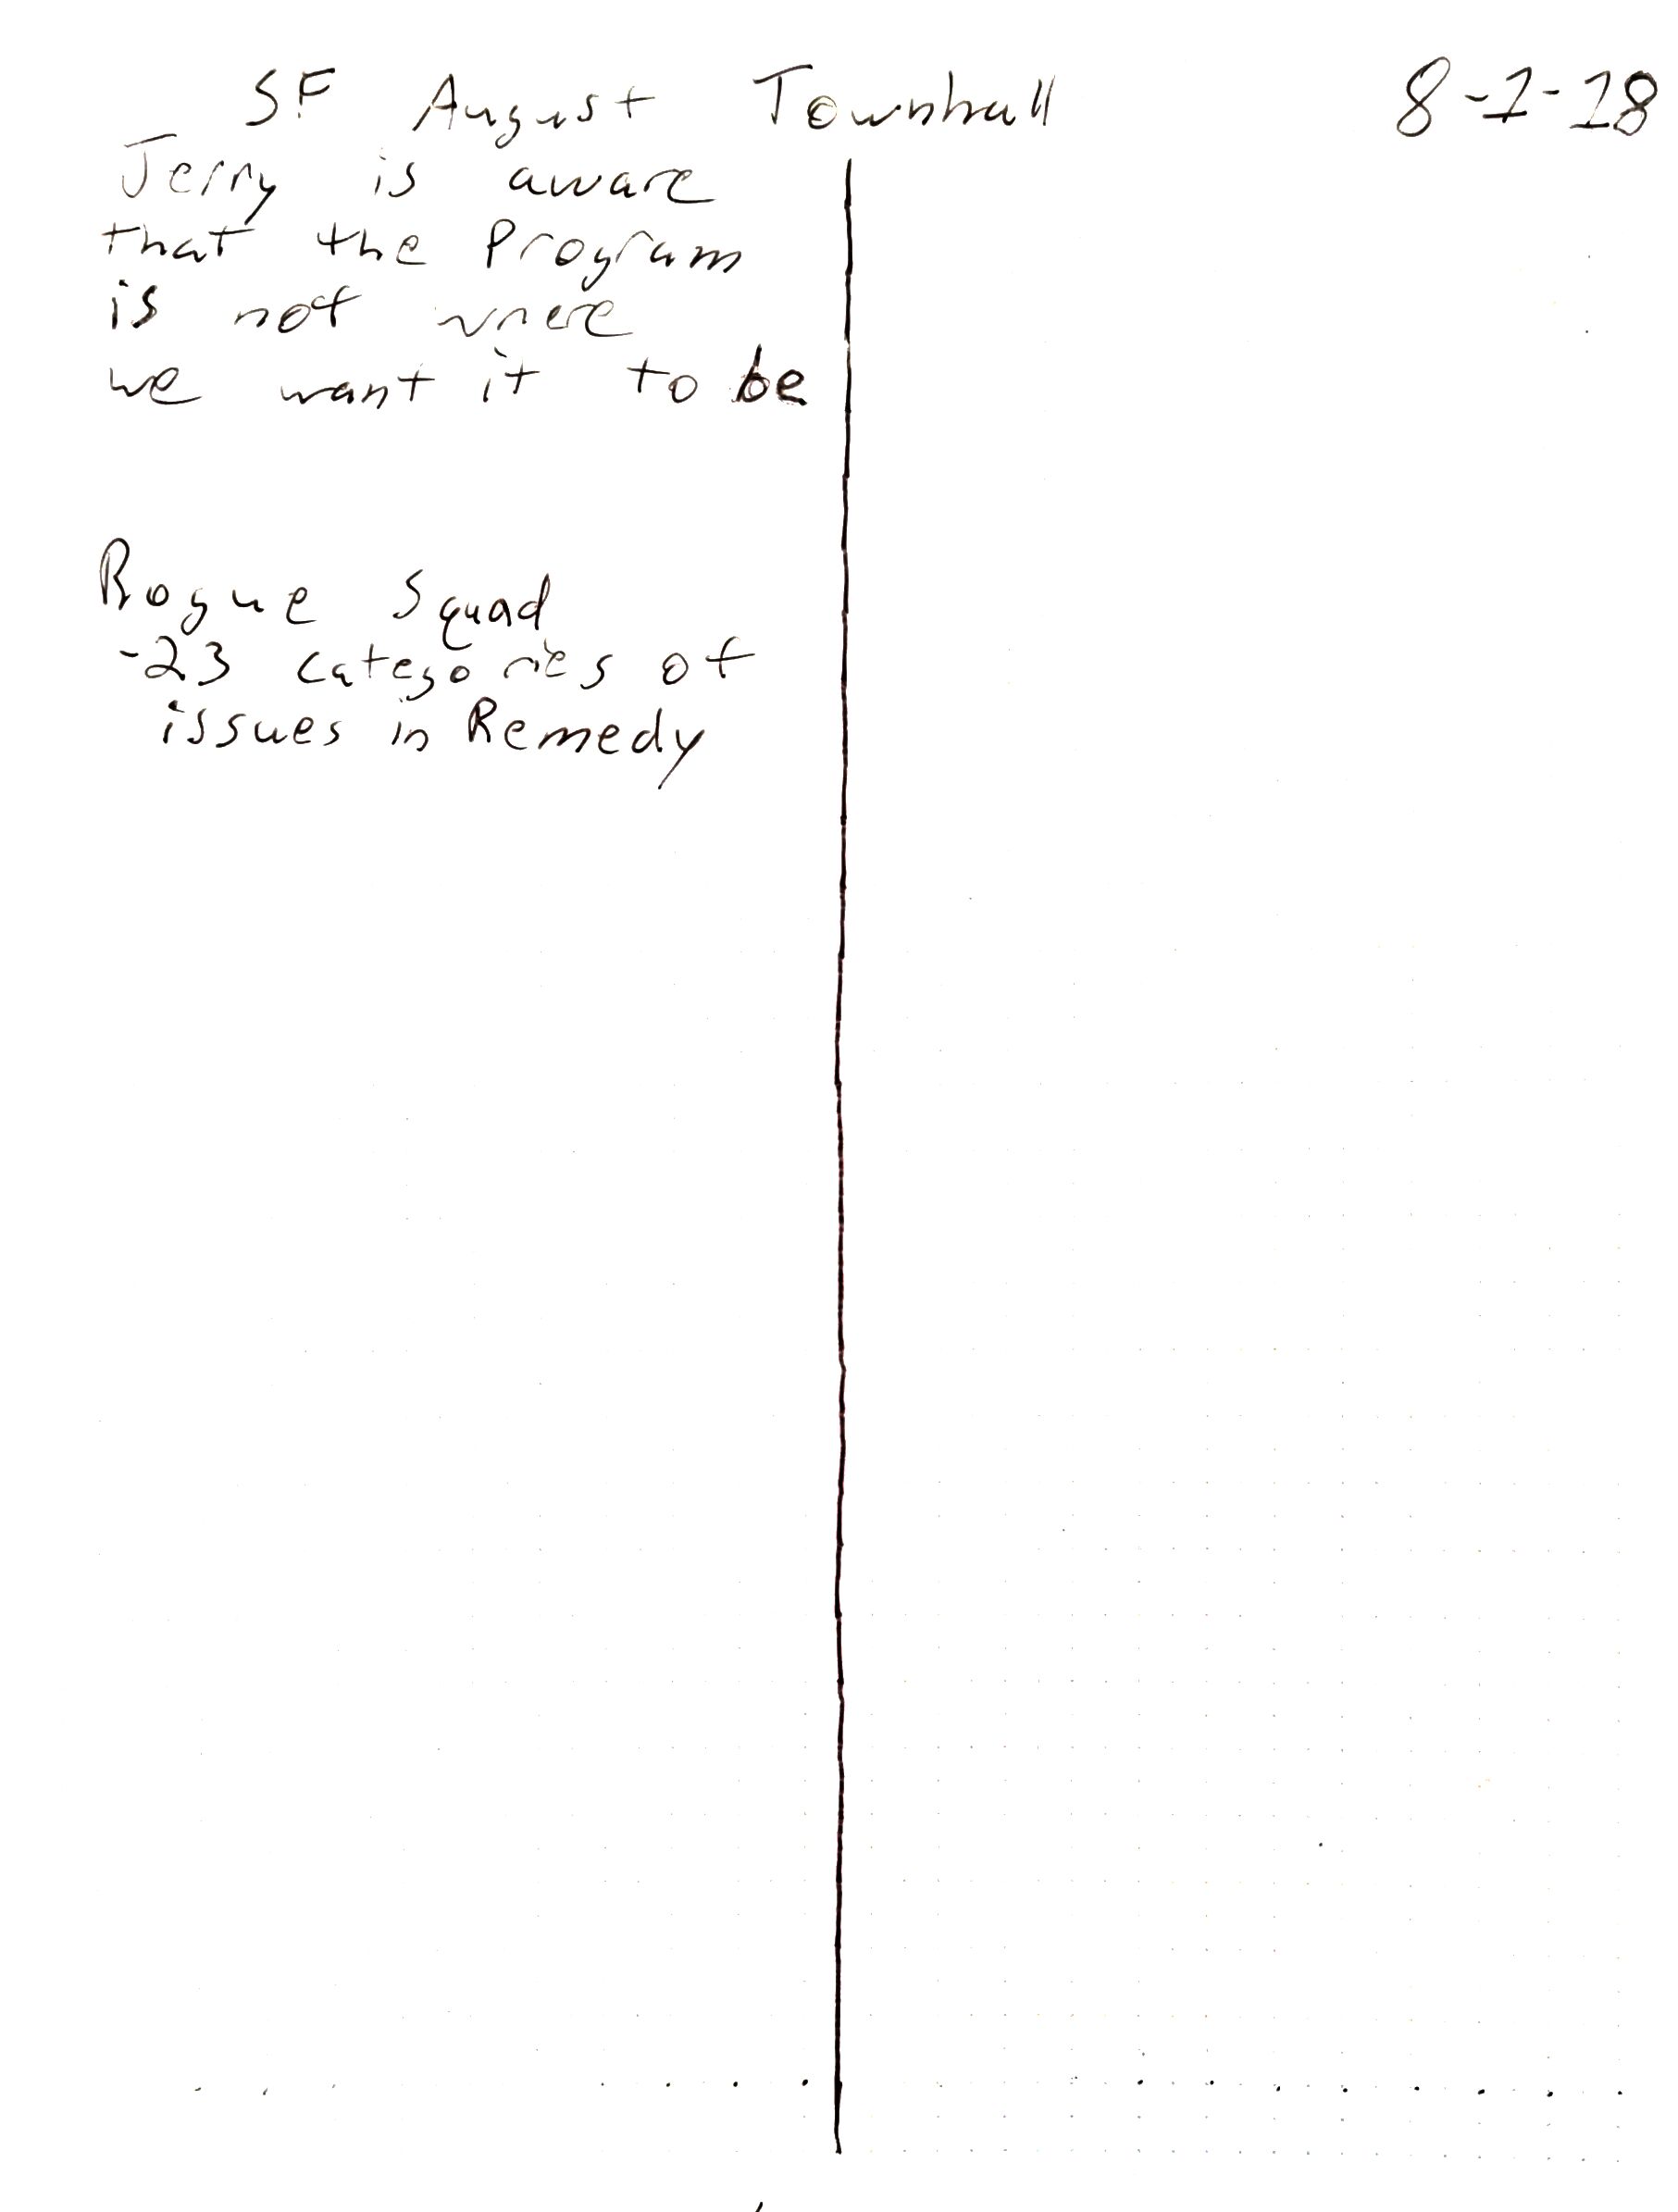 SF August Townhall 8-1-18
Jerry is aware
that the Program
is not where
we want it to be
Rogue Squad
-23 categories of
issues in Remedy